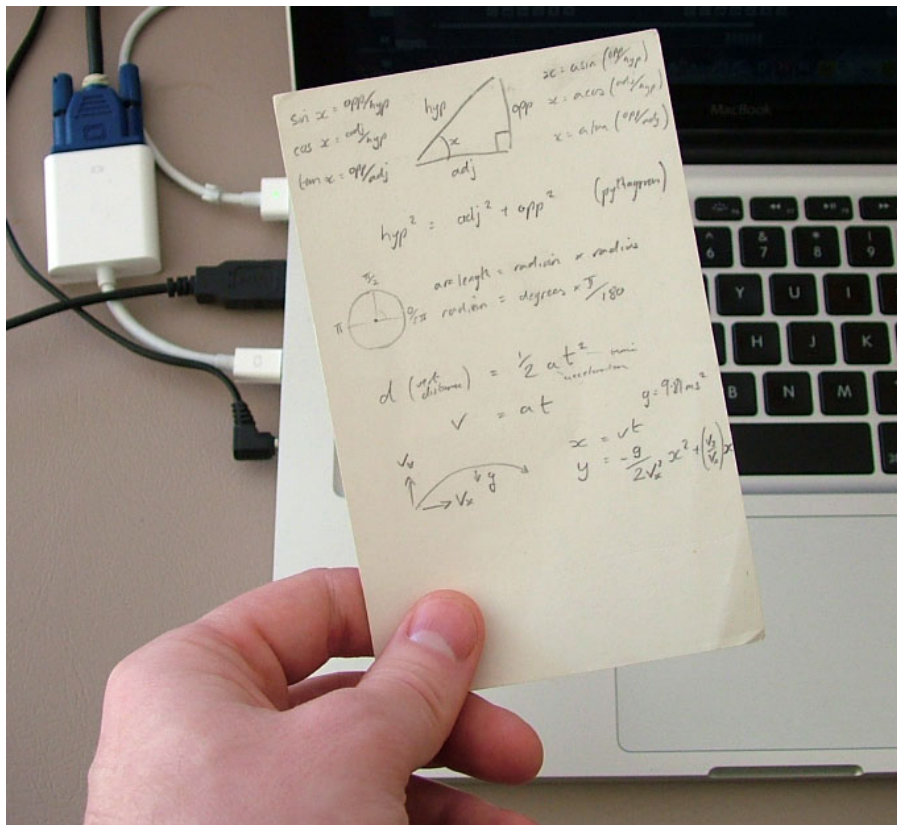 sin x = opp/hyp
cos x = adj/hyp
tan x = opp/adj
hyp
opp
x
adj
x = asin (opp/hyp)
x = acos (adj/hyp)
x = atan (opp/adj)
hyp² = adj² + opp² (pythagoras)
π/2
π
0/2π
arc length = radian × radius
radian = degrees × π/180
d (vert. distance) = 1/2 at²
acceleration
v = at
g = 9.81ms²
x = vt
y = -g/2Vx² x² + (Vy/Vx)x
Vy
g
Vx
MacBook
^ 6
& 7
* 8
( 9
Y
U
I
H
J
K
B
N
M